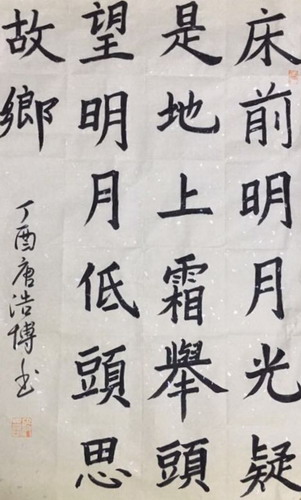 床前明月光疑
是地上霜舉頭
望明月低頭思
故鄉
丁酉唐浩博书